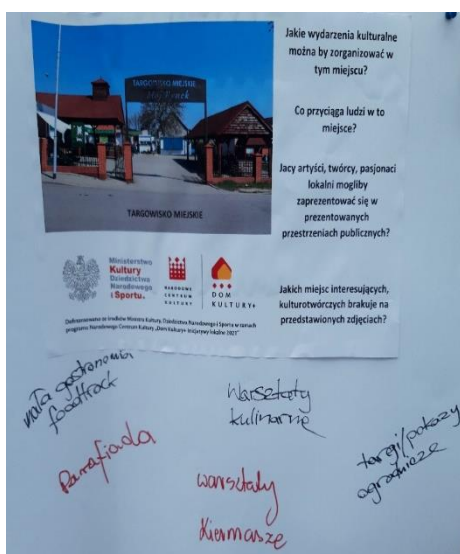 Jakie wydarzenia kulturalne
można by zorganizować w
tym miejscu?
Co przyciąga ludzi w to
miejsce?
Jacy artyści, twórcy, pasjonaci
lokalni mogliby
zaprezentować się w
prezentowanych
przestrzeniach publicznych?
Jakich miejsc interesujących,
kulturotwórczych brakuje na
przedstawionych zdjęciach?
TARGOWISKO MIEJSKIE
TARGOWISKO MIEJSKIE
Ministerstwo
Kultury
Dziedzictwa
Narodowego
i Sportu.
NARODOWE
CENTRUM
KULTURY
DOM
KULTURY+
Dofinansowano ze środków Ministra Kultury, Dziedzictwa Narodowego i Sportu w ramach
programu Narodowego Centrum Kultury „Dom Kultury+ Inicjatywy lokalne 2021"
mała gastronomia
foodtrack
Parafiada
Warsztaty
kulinarne
warsztaty
Kiermasze
targi/pokazy
ogrodnicze